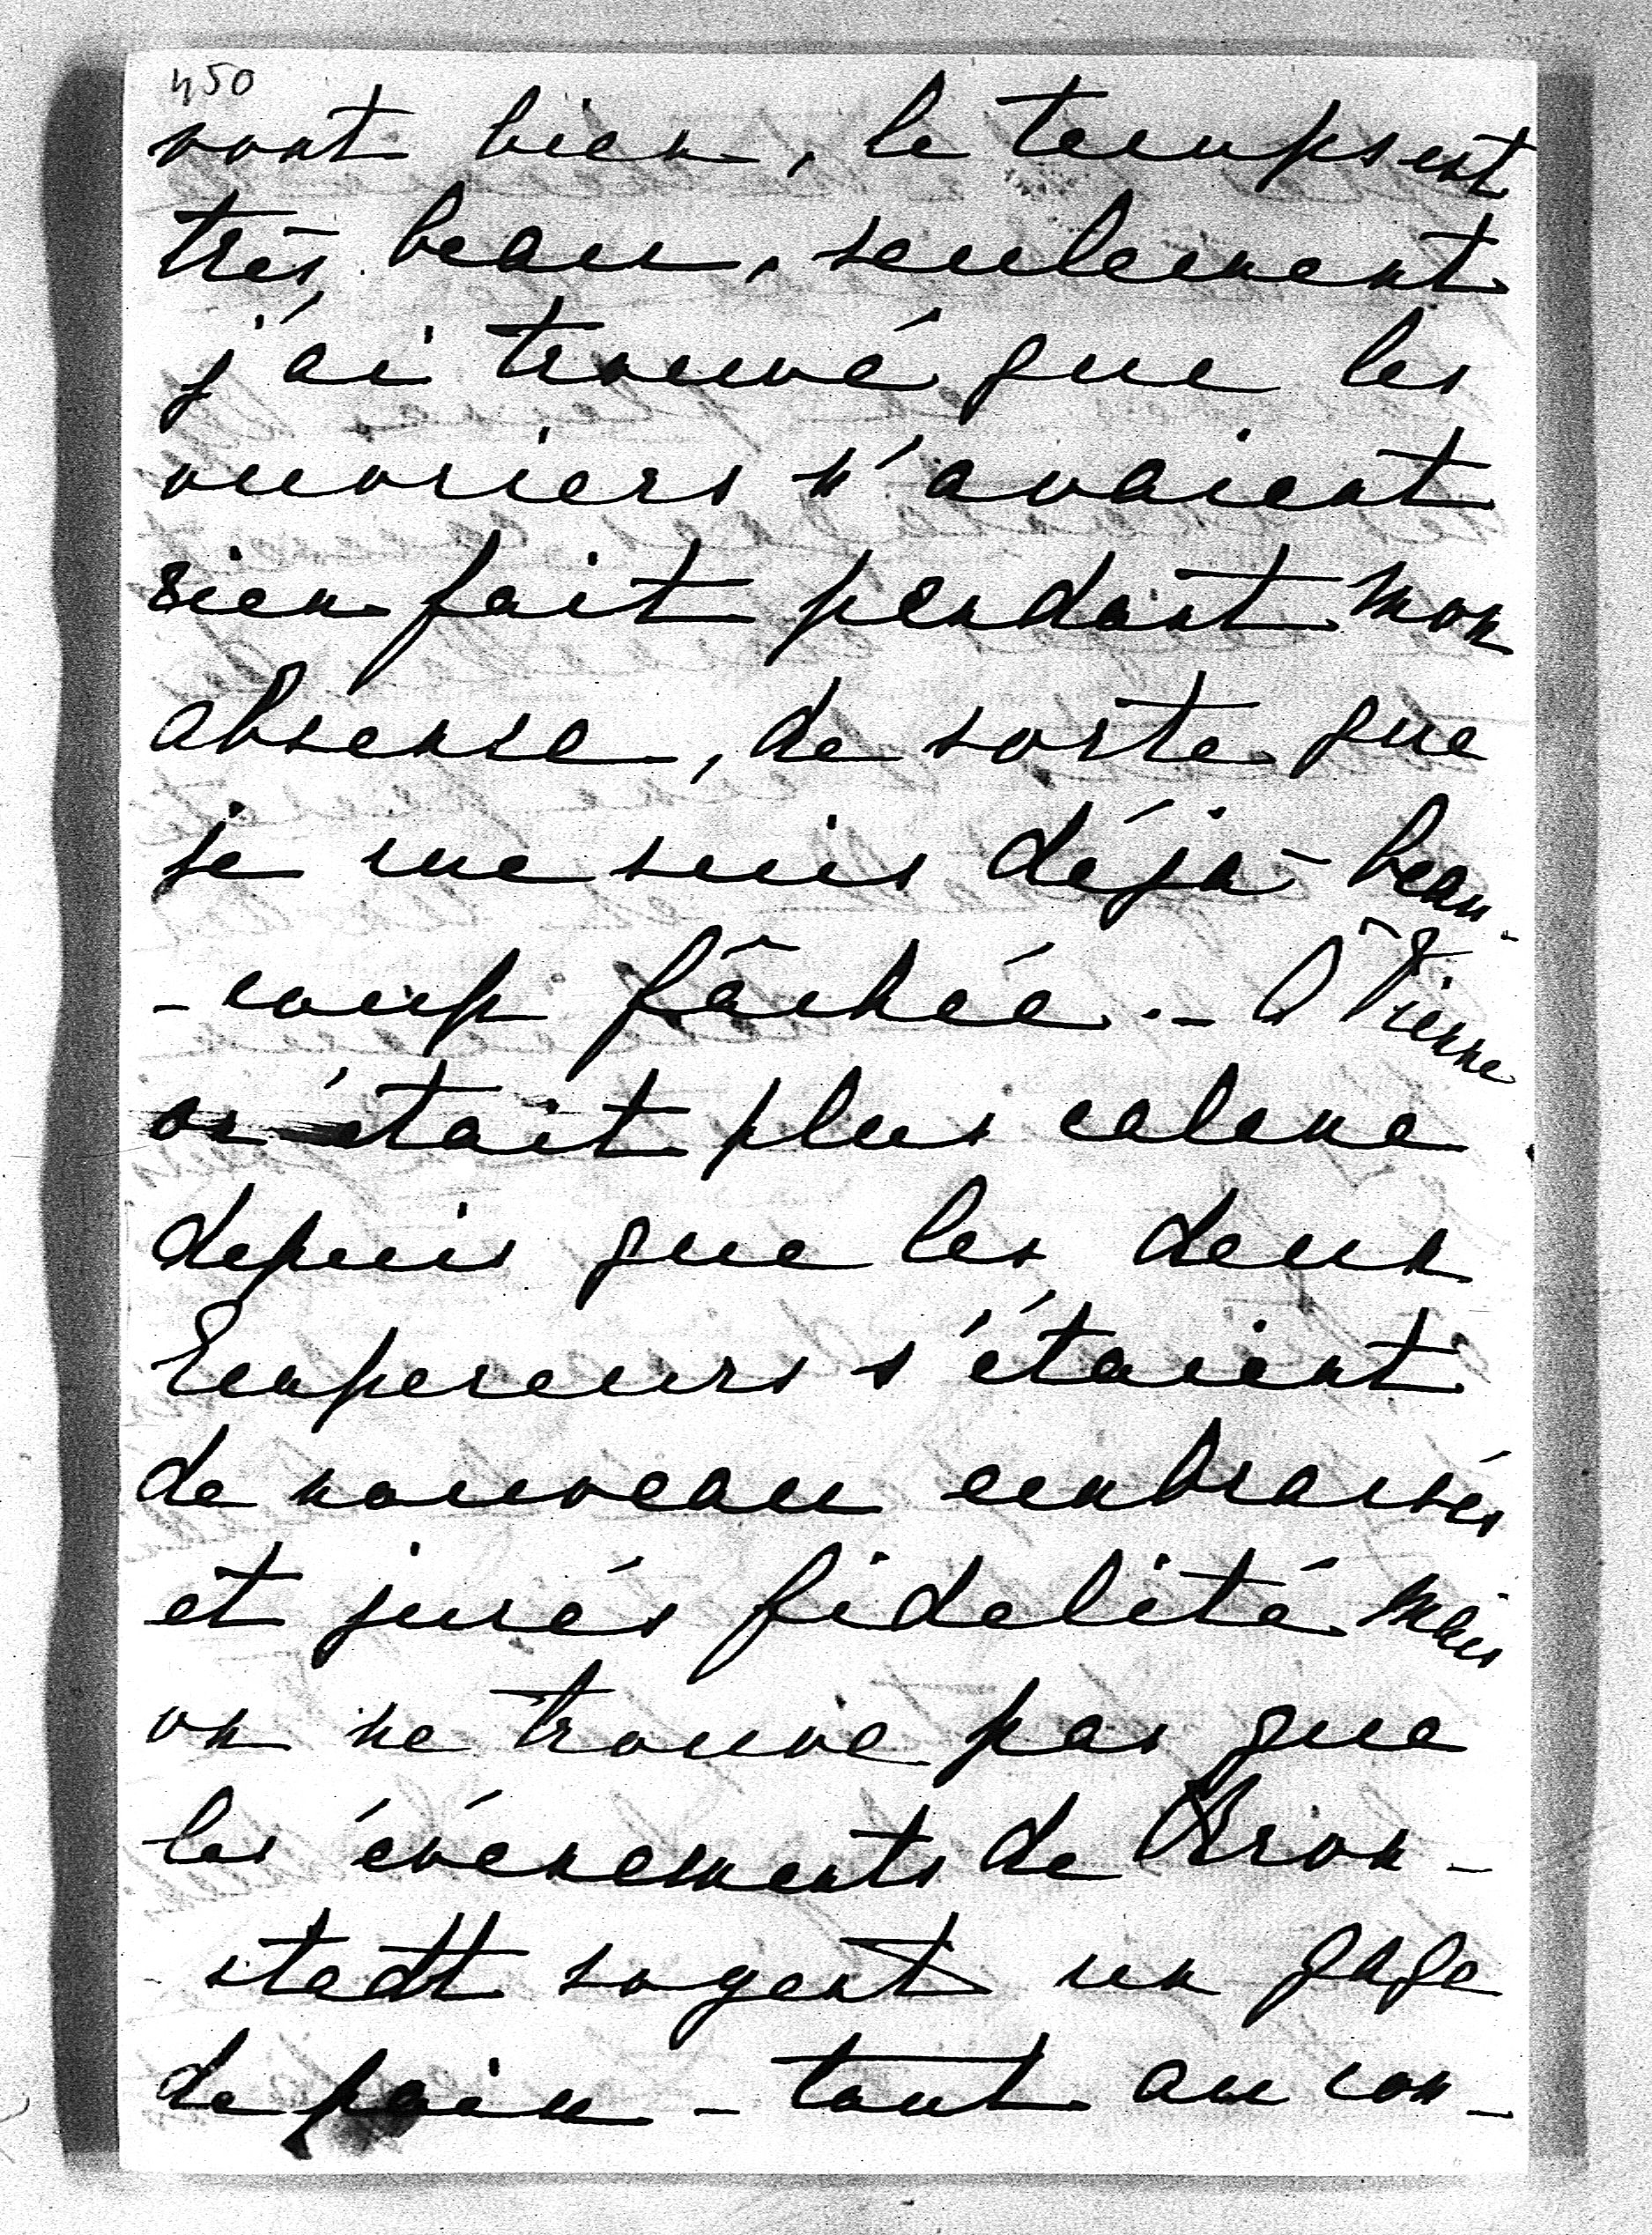 450
vont bien, le temps est
très beau, seulement
j'ai trouvé que les
ouvriers n'avaient
rien fait pendant mon
absence, de sorte que
je me suis déjà beau-
-coup fâchée. - A Vienne
on était plus calme
depuis que les deux
Empereurs s'étaient
de nouveau embrassés
et jurés fidelité mais
on ne trouve pas que
les événements de Kron-
stadt soyent un gage
de paix - tout au con-